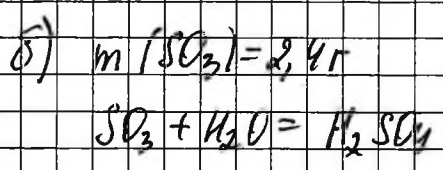 б) m (SO₃) = 2,4 г
SO₃ + H₂O = H₂SO₄